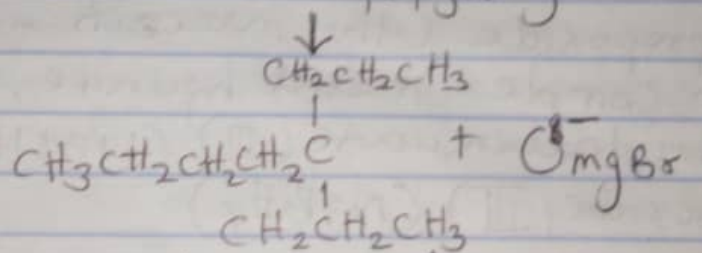 CH₂CH₂CH₃
CH₃CH₂CH₂CH₂C + O⁻mgBr
CH₂CH₂CH₃